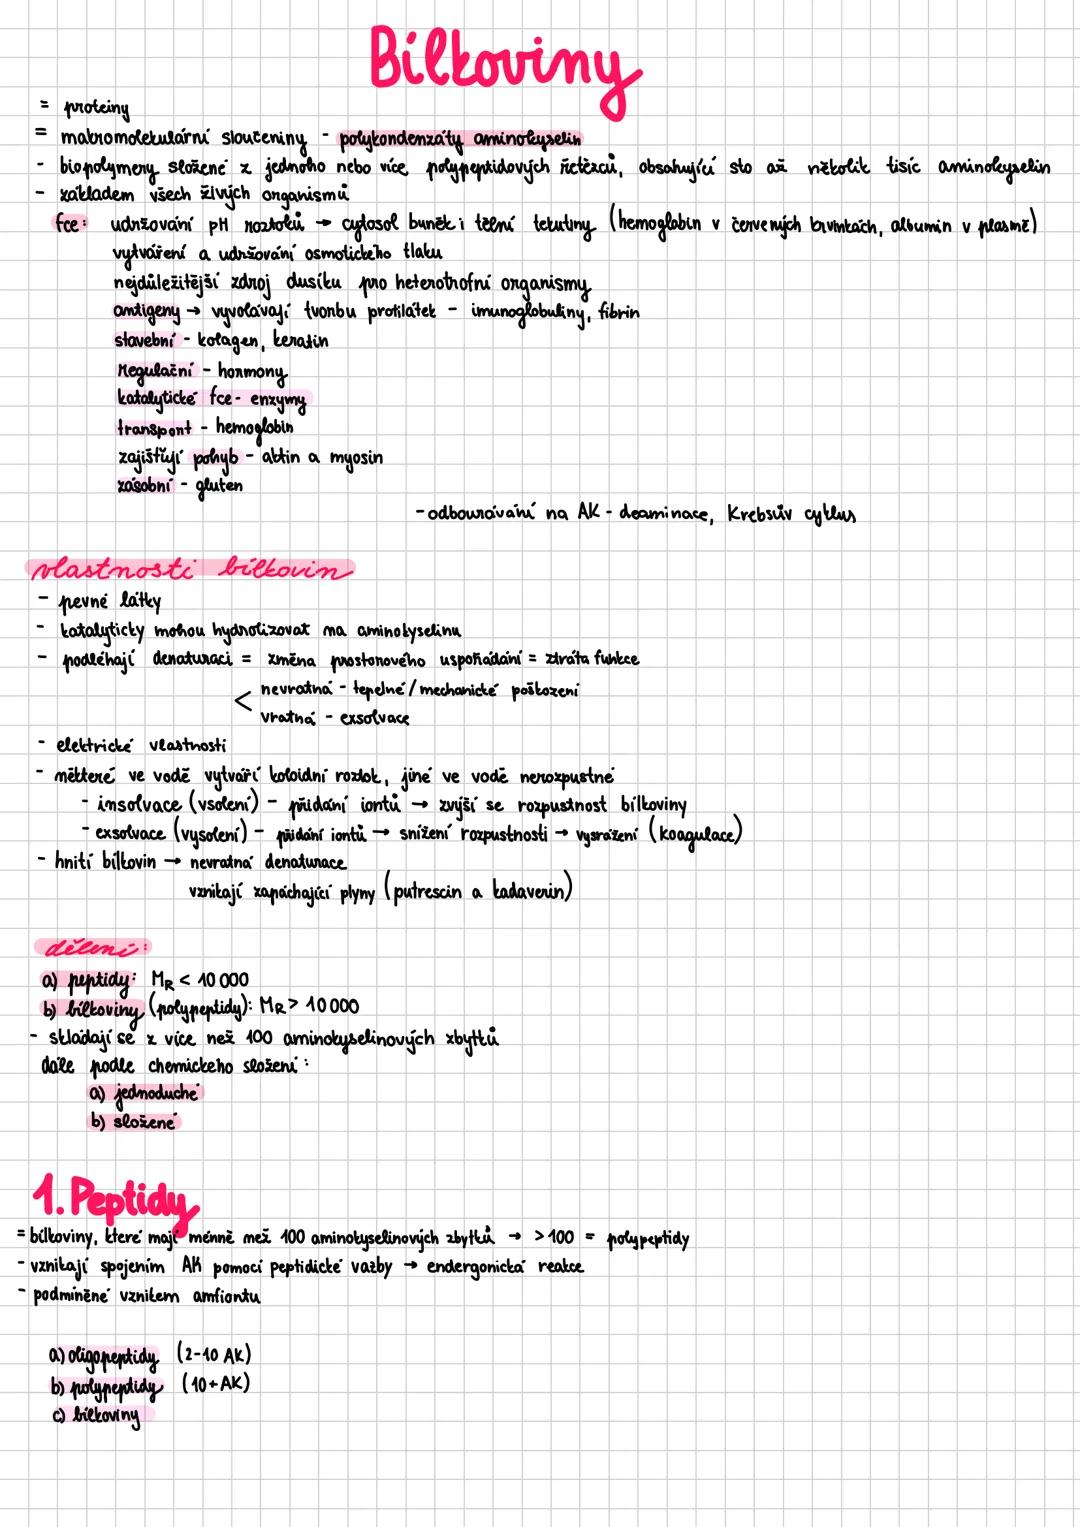 Bílkoviny
= proteiny
= makromolekulární sloučeniny - polykondenzáty aminokyselin
- biopolymery složené z jednoho nebo více polypeptidových řetězců, obsahující sto až několik tisíc aminokyselin
- základem všech živých organismů
fce: udržování pH roztoků → cytosol buněk i tělní tekutiny (hemoglobin v červených krvinkách, albumin v plasmě)
vytváření a udržování osmotického tlaku
nejdůležitější zdroj dusíku pro heterotrofní organismy
antigeny → vyvolávají tvorbu protilátek - imunoglobuliny, fibrin
stavební - kolagen, keratin
regulační - hormony
katalytické fce - enzymy
transport - hemoglobin
zajišťují pohyb - aktin a myosin
zásobní - gluten
- odbourávání na AK - deaminace, Krebsův cyklus
vlastnosti bílkovin
- pevné látky
- katalyticky mohou hydrolizovat na aminokyselinu
- podléhají denaturaci = změna prostorového uspořádání = ztráta funkce
< nevratná - tepelné/mechanické poškození
vratná - exsolvace
- elektrické vlastnosti
- některé ve vodě vytváří koloidní roztok, jiné ve vodě nerozpustné
- insolvace (vsolení) - přidání iontů → zvýší se rozpustnost bílkoviny
- exsolvace (vysolení) - přidání iontů → snížení rozpustnosti → vysrážení (koagulace)
- hnití bílkovin → nevratná denaturace
vznikají zapáchající plyny (putrescin a kadaverin)
dělení:
a) peptidy: MR < 10 000
b) bílkoviny (polypeptidy): MR > 10 000
- skládají se z více než 100 aminokyselinových zbytků
dále podle chemického složení:
a) jednoduché
b) složené
1. Peptidy
= bílkoviny, které mají ménně než 100 aminokyselinových zbytků → >100 = polypeptidy
- vznikají spojením AK pomocí peptidické vazby → endergonická reakce
- podmíněné vznikem amfiontu
a) oligopeptidy (2-10 AK)
b) polypeptidy (10+ AK)
c) bílkoviny